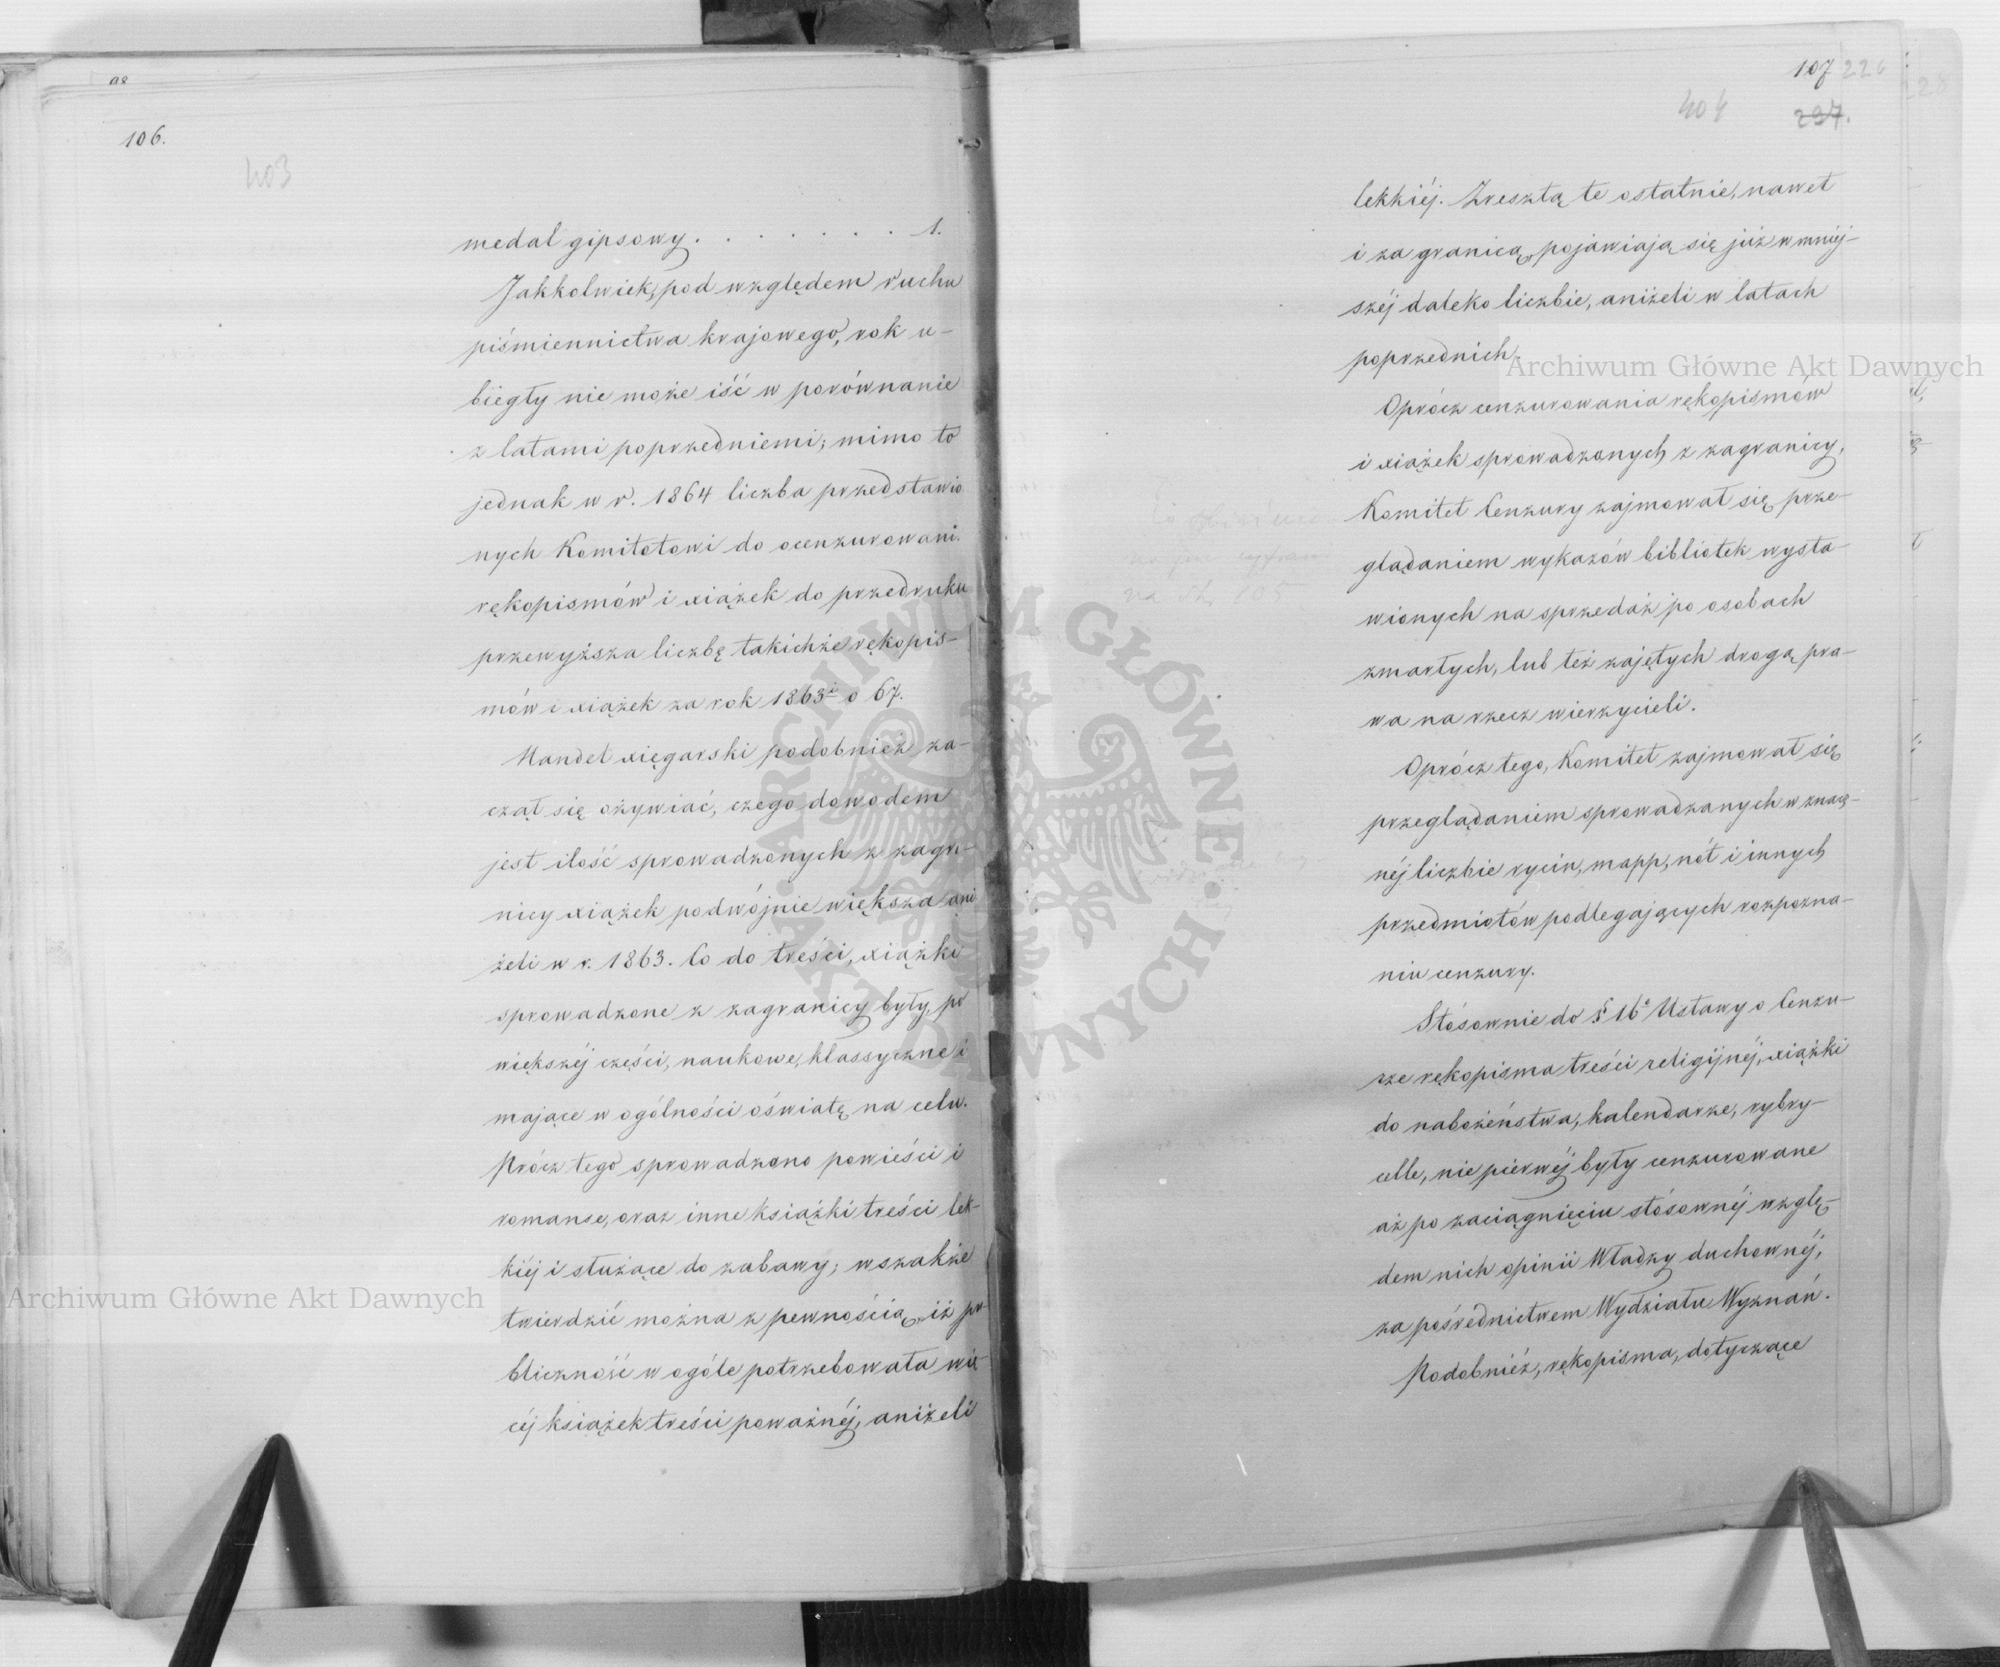 106.
403
medal gipsowy . . . . . . . . 1.
Jakkolwiek, pod względem ruchu
piśmiennictwa krajowego, rok u-
biegły nie może iść w porównanie
z latami poprzedniemi; mimo to
jednak w r. 1864 liczba przedstawio
nych Komitetowi do ocenzurowani.
rękopismów i xiążek do przedruku
przewyższa liczbę takichże rękopis-
mów i xiążek za rok 1863i o 67.
Handel xięgarski podobnież za-
czął się ożywiać, czego dowodem
jest ilość sprowadzonych z zagra-
nicy xiążek podwójnie większa ani
żeli w r. 1863. Co do treści, xiążki
sprowadzone z zagranicy były, po
większéj części, naukowe, klassyczne i
mające w ogólności oświatę na celu.
Prócz tego sprowadzono powieści i
romanse, oraz inne książki treści lek-
kiéj i służące do zabawy; wszakże
twierdzić można z pewnością, iż pu-
bliczność w ogóle potrzebowała wię-
céj książek treści poważnéj, aniżeli
107 226
404 237.
lekkiéj. Zresztą te ostatnie, nawet
i za granicą, pojawiają się już w mniéj-
széj daleko liczbie, aniżeli w latach
poprzednich.
Oprócz cenzurowania rękopismów
i xiążek sprowadzonych z zagranicy,
Komitet Cenzury zajmował się prze-
glądaniem wykazów bibliotek wysta-
wionych na sprzedaż po osobach
zmarłych, lub też zajętych drogą pra-
wa na rzecz wierzycieli.
Oprócz tego, Komitet zajmował się
przeglądaniem sprowadzanych w znacz-
néj liczbie rycin, mapp, nót i innych
przedmiotów podlegających rozpozna-
niu cenzury.
Stósownie do § 16o Ustawy o Cenzu-
rze rękopisma treści religijnéj, xiążki
do nabożeństwa, kalendarze, rybry-
celle, nie pierwéj były cenzurowane
aż po zaciągnięciu stósownéj wzglę-
dem nich opinii Władzy duchownéj,
za pośrednictwem Wydziału Wyznań.
Podobnież, rękopisma, dotyczące
Archiwum Główne Akt Dawnych
Archiwum Główne Akt Dawnych
ARCHIWUM GŁÓWNE AKT DAWNYCH